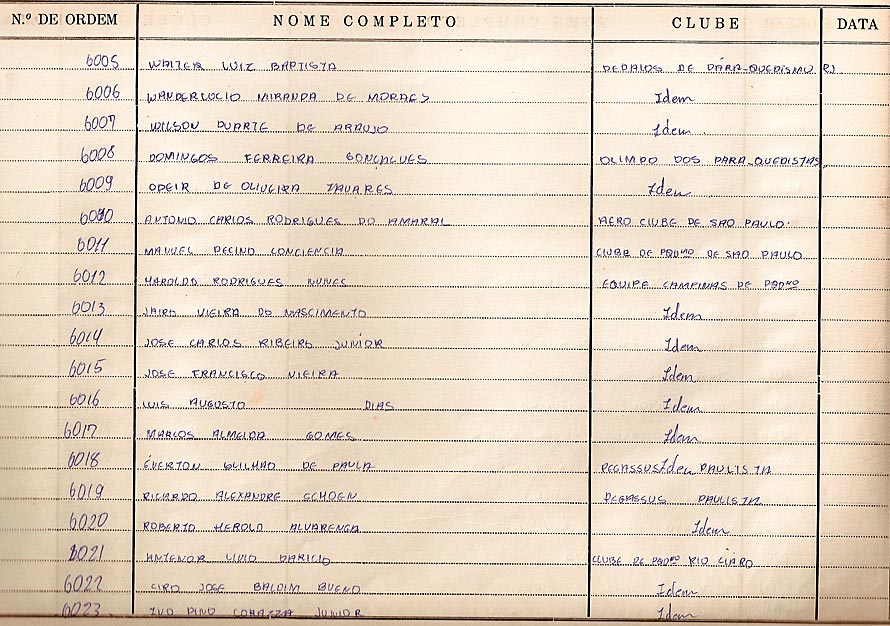 N.º DE ORDEM NOME COMPLETO CLUBE DATA
6005 WALTER LUIZ BAPTISTA DE PÁRA-QUEDISMO RJ
6006 WANDERLUCIO MIRANDA DE MORAES Idem
6007 WILSON DUARTE DE ARAUJO Idem
6008 DOMINGOS FERREIRA GONÇALVES OLIMPO DOS PARA-QUEDISTAS
6009 ODEIR DE OLIVEIRA TAVARES Idem
6010 ANTONIO CARLOS RODRIGUES DO AMARAL AERO CLUBE DE SAO PAULO.
6011 MANUEL CONCIENCIA CLUBE DE PQDmo DE SAO PAULO
6012 HAROLDO RODRIGUES NUNES EQUIPE CAMPINAS DE PQDmo
6013 JAIRO VIEIRA DO NASCIMENTO Idem
6014 JOSE CARLOS RIBEIRO JUNIOR Idem
6015 JOSE FRANCISCO VIEIRA Idem
6016 LUIS AUGUSTO DIAS Idem
6017 MARCOS ALMEIDA GOMES Idem
6018 ÉVERTON GUILHAO DE PAULA PEGASSUS Idem PAULISTA
6019 RICARDO ALEXANDRE SCHOEN PEGASSUS PAULISTA
6020 ROBERTO HEROLD ALVARENGA Idem
6021 ANTENOR LIVIO CLUBE DE PQDmo RIO CLARO
6022 CIRO JOSE BALDIM BUENO Idem
6023 IVO PINO CORAZZA JUNIOR Idem